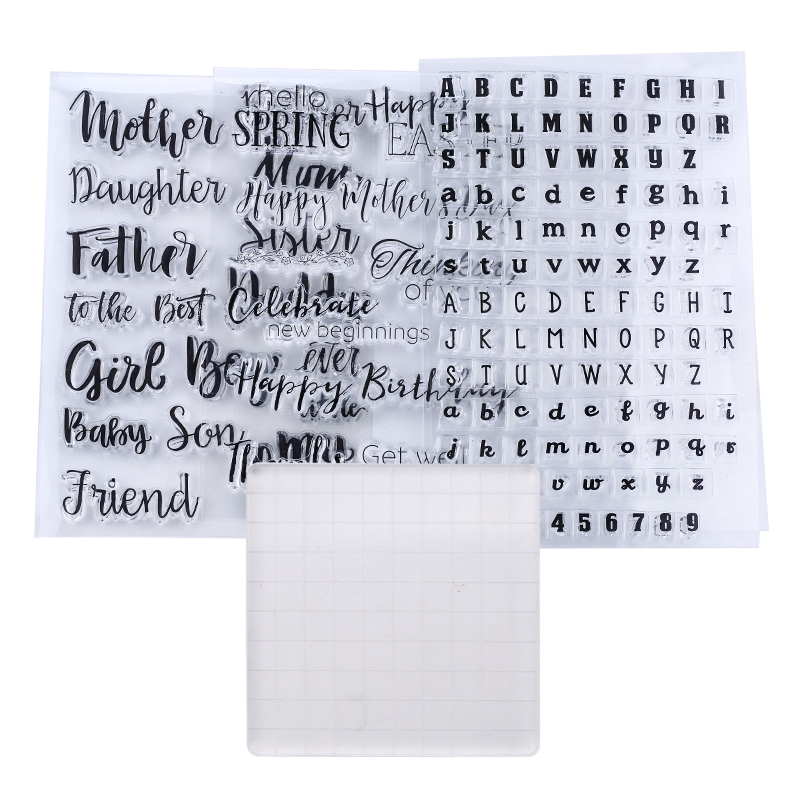 Mother
Daughter
Father
to the Best
Girl
Baby Son
Friend
hello
SPRING
Happy
EASTER
Mum
Happy Mother's Day
Sister
Thinking
of you
Celebrate
new beginnings
ever
Happy Birthday
Get well
A B C D E F G H I
J K L M N O P Q R
S T U V W X Y Z
a b c d e f g h i
j k l m n o p q r
s t u v w x y z
A B C D E F G H I
J K L M N O P Q R
S T U V W X Y Z
a b c d e f g h i
j k l m n o p q r
v w x y z
4 5 6 7 8 9